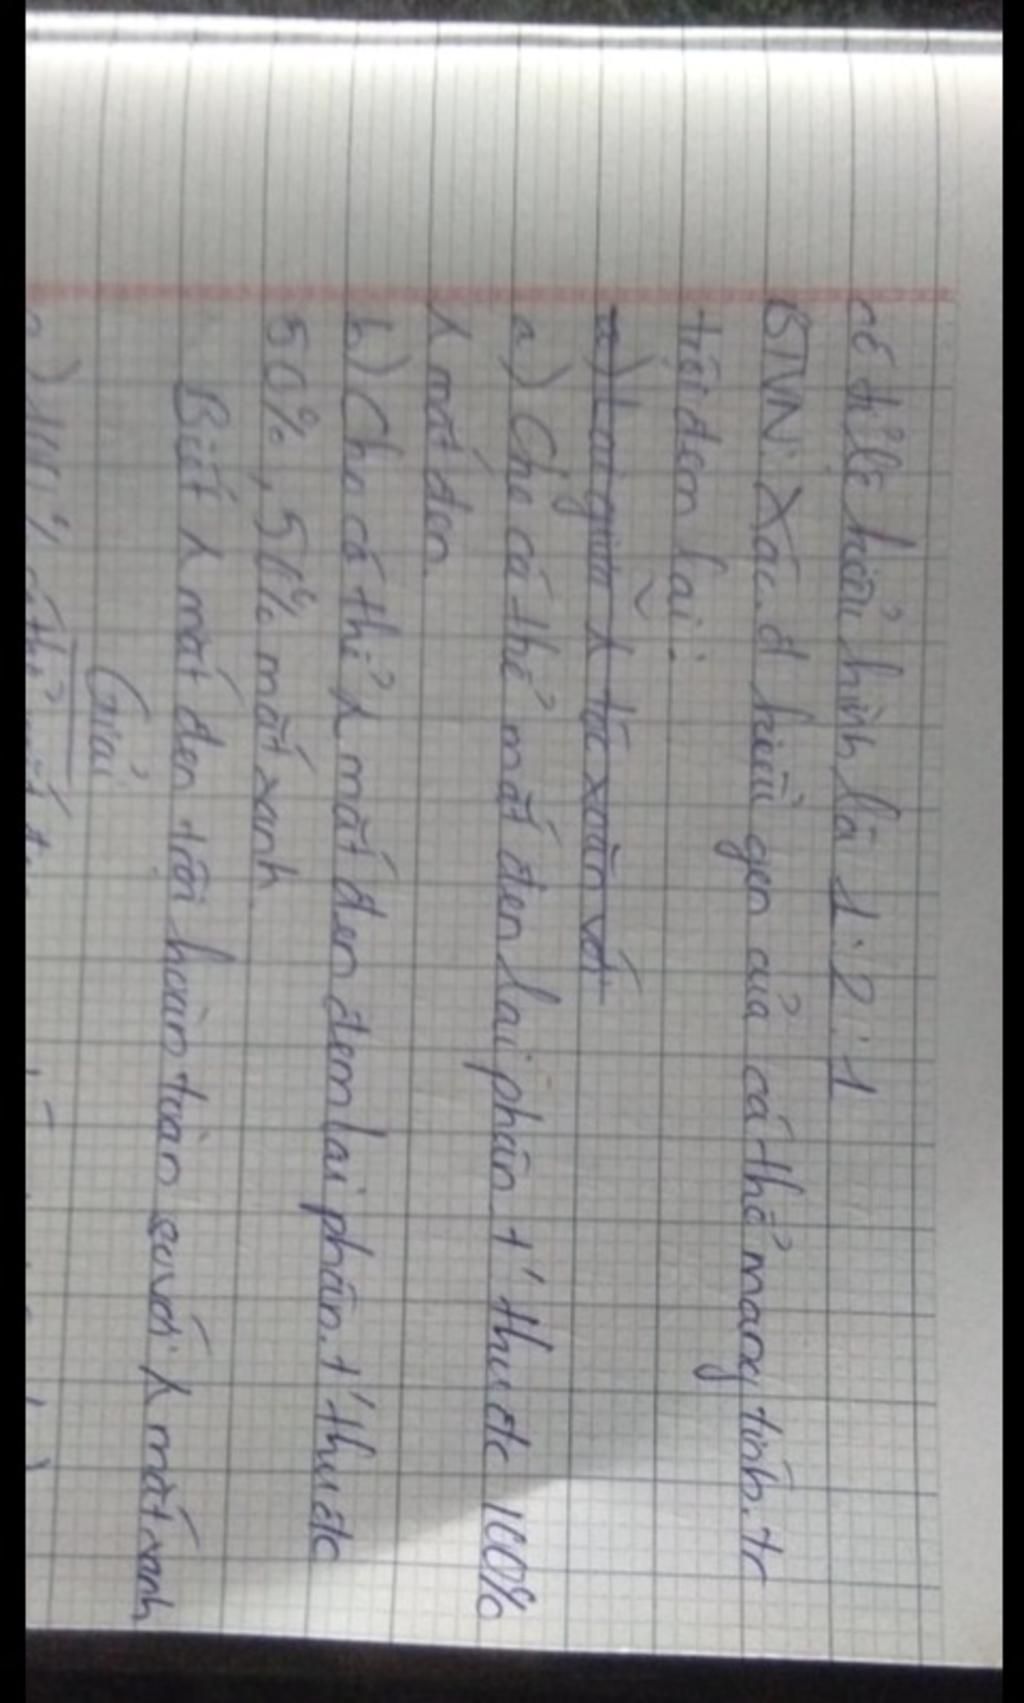 có tỉ lệ kiểu hình là 1:2:1
BTVN: Xác.đ kiểu gen của cá thể mang tính.tr
trội đem lại:
a) Lai giữa λ tóc xoăn với
a) Cho cá thể mắt đen lai phân t' thu đc 100%
λ mắt đen
b) Cho cá thể λ mắt đen đem lai phân.t' thu đc
50%, 50% mắt xanh
Biết λ mắt đen trội hoàn toàn so với λ mắt xanh
Giải
a) 100% cá thể mắt